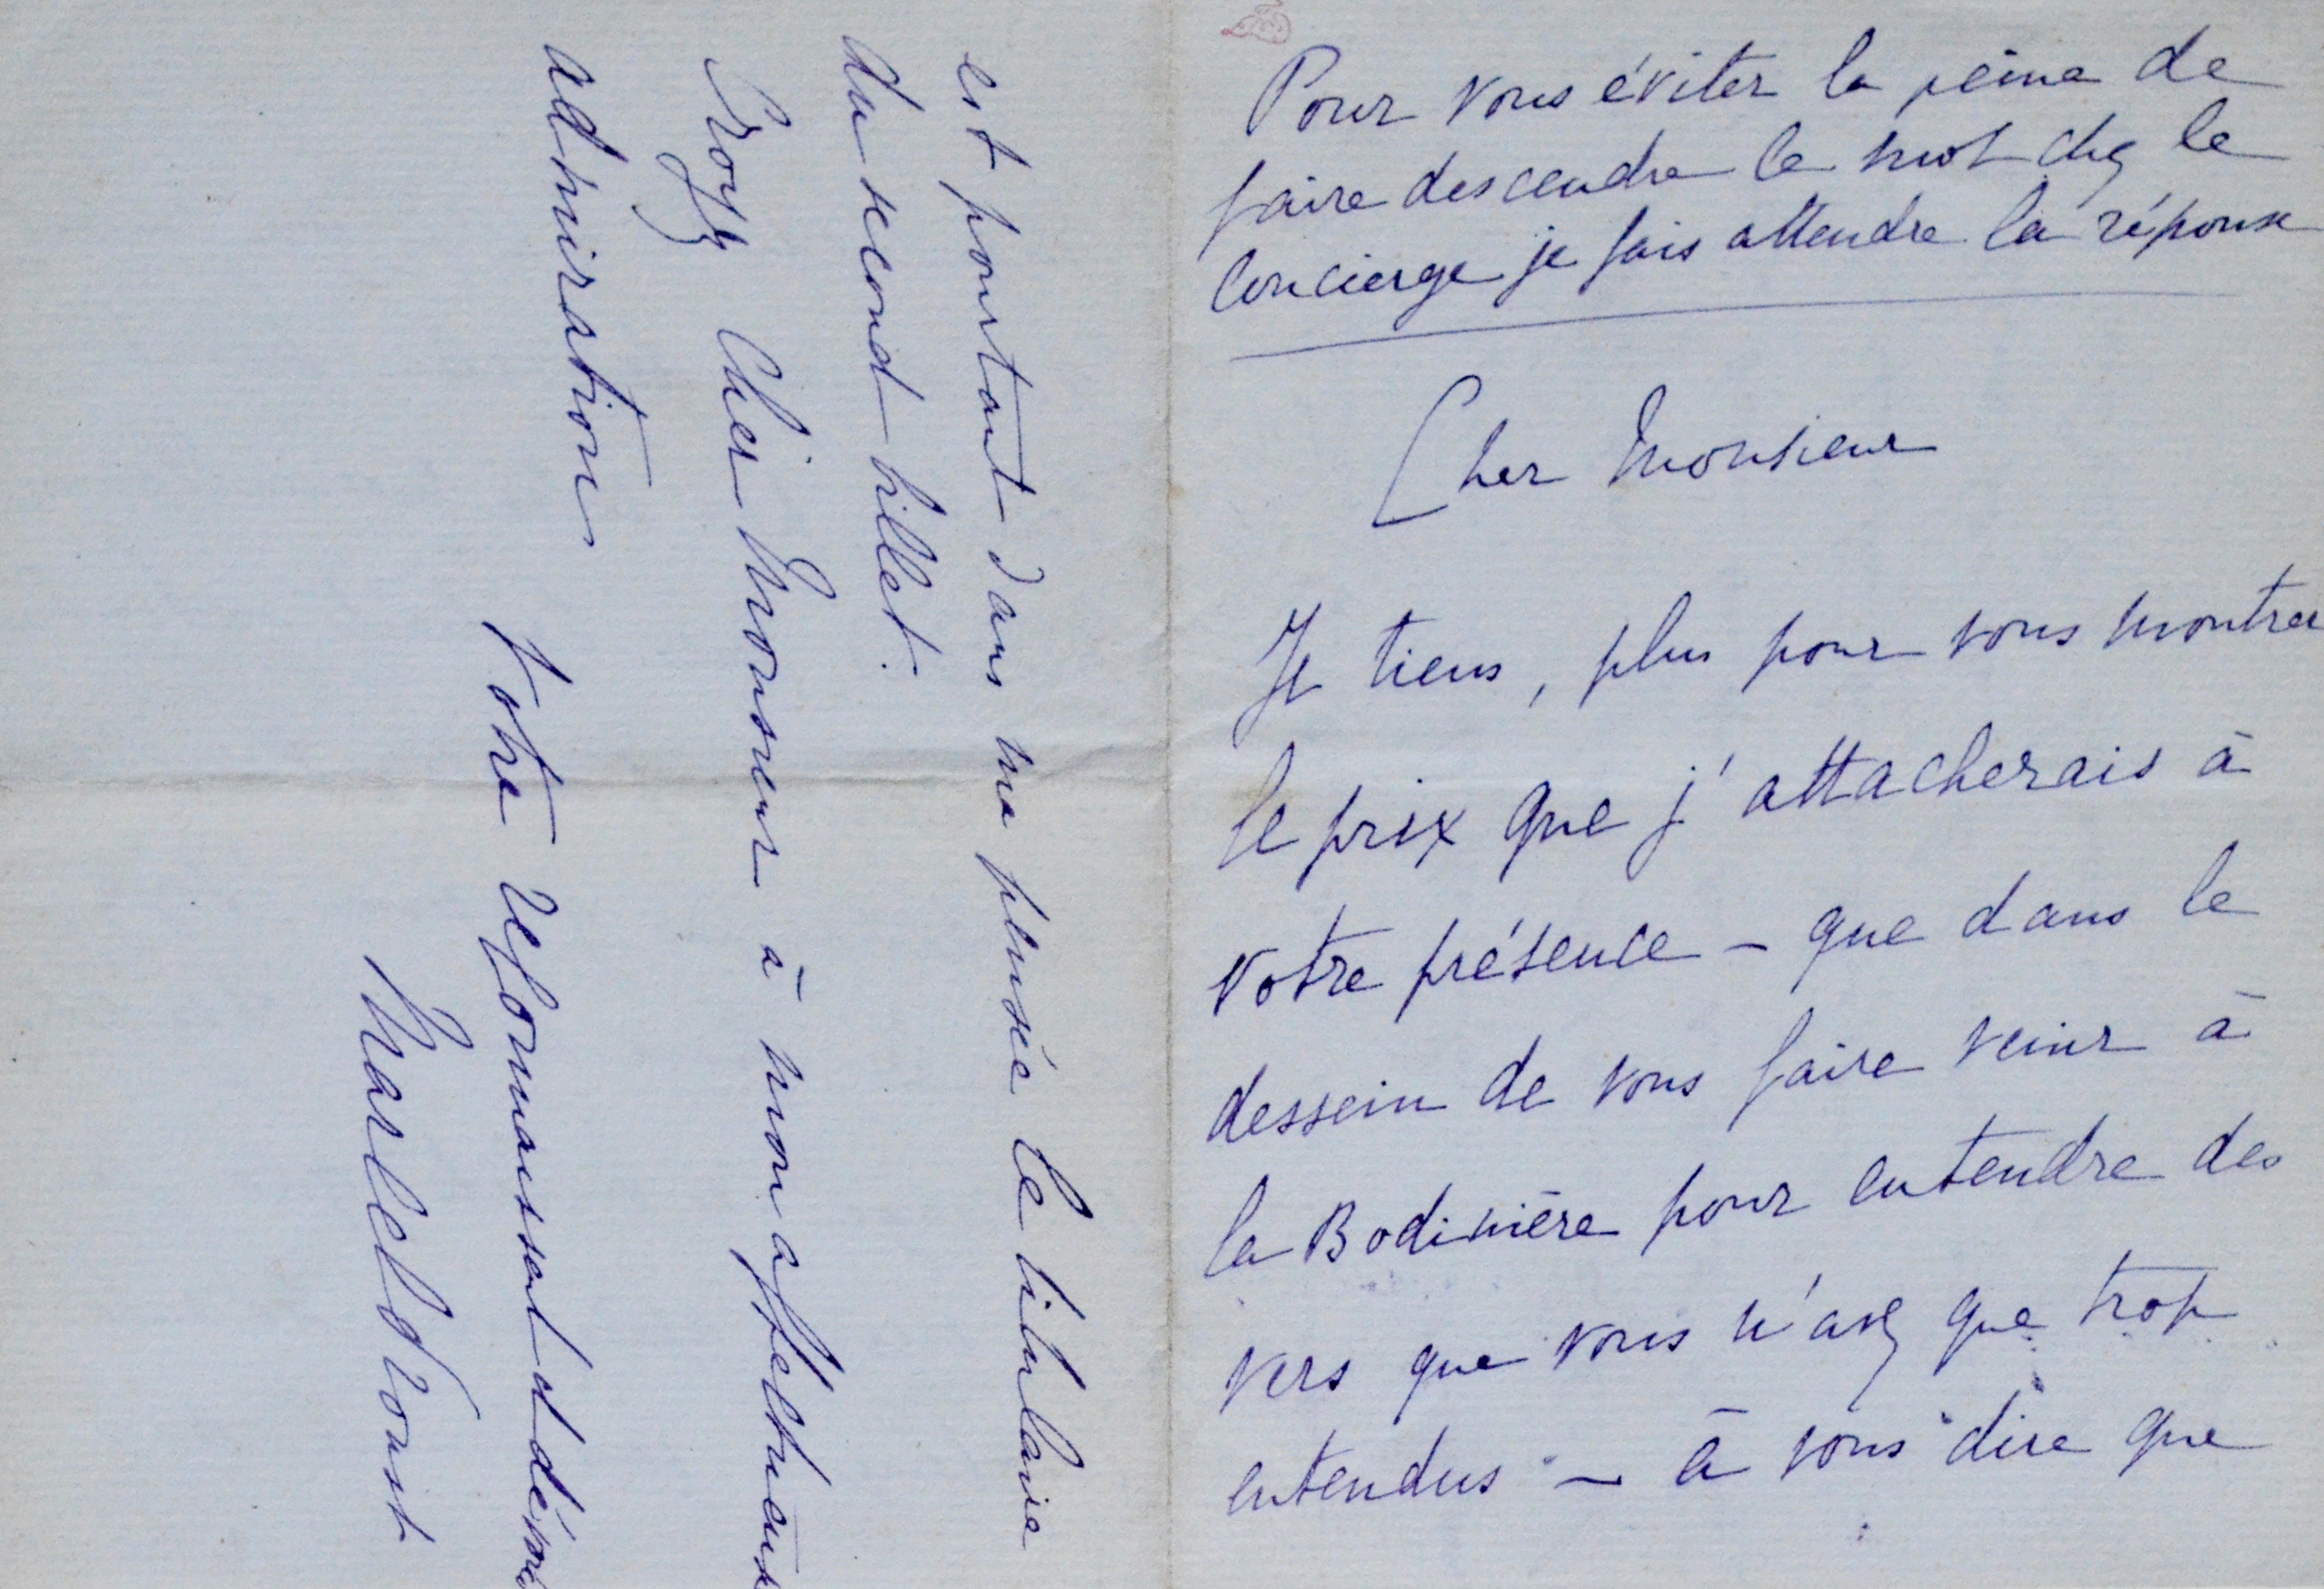 Pour vous éviter la peine de
faire descendre le mot chez le
concierge je fais attendre la réponse
Cher Monsieur
Je tiens, plus pour vous montrer
le prix que j'attacherais à
votre présence – que dans le
dessein de vous faire venir à
la Bodinière pour entendre des
vers que vous n'avez que trop
entendus – à vous dire que
est pourtant dans ma pensée le titulaire
du second billet.
Croyez Cher Monsieur à mon affectueuse
admiration
Votre reconnaissant et dévoué
Marcel Proust